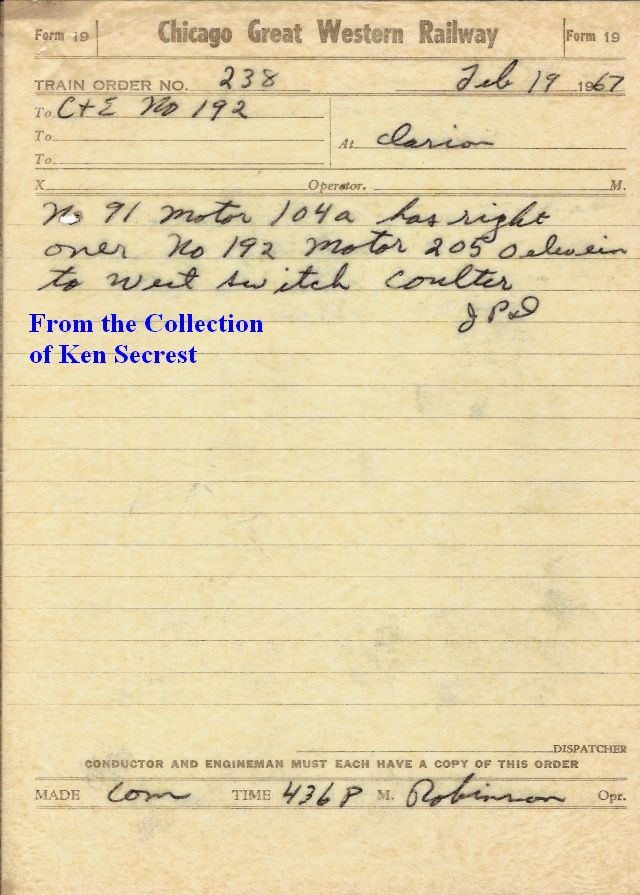 Form 19 Chicago Great Western Railway Form 19
TRAIN ORDER NO. 238 Feb 19 1967
To C+E No 192
To
To
At Clarion
X Operator. M.
No 91 Motor 104a has right
over No 192 Motor 205 Oelwein
to West switch Coulter
From the Collection
of Ken Secrest
DISPATCHER
CONDUCTOR AND ENGINEMAN MUST EACH HAVE A COPY OF THIS ORDER
MADE Com TIME 436 P M. Robinson Opr.